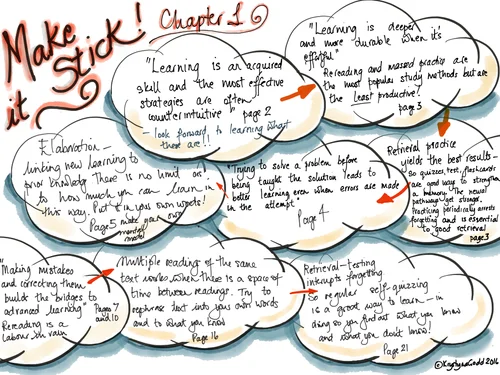 Make
it Stick!
Chapter 1
"Learning is an acquired
skill and the most effective
strategies are often
counterintuitive" page 2
- look forward to learning what
these are!!
"Learning is deeper
and more durable when it's
effortful"
Rereading and massed practice are
the most popular study methods but are
the least productive!
page 3
Retrieval practice
yields the best results -
So quizzes, test, flashcards
are good ways to strengthen
memory. The neural
pathways get stronger.
Practicing periodically arrests
forgetting and is essential
to good retrieval
page 3
"Trying to solve a problem before
being taught the solution leads to
better learning even when errors are made
in the attempt"
Page 4
Elaboration -
linking new learning to
prior knowledge There is no limit as
to how much you can learn in
this way. Put it in you own words!
Page 5 make your own
mental
models
"Making mistakes
and correcting them
builds the bridges to
advanced learning" Pages 7
and 10
Rereading is a
labour in vain
Multiple readings of the same
text works when there is a space of
time between readings. Try to
rephrase text into your own words
and to what you know
Page 16
Retrieval - testing
interupts forgetting
So regular self-quizzing
is a great way to learn - in
doing so you find out what you know
and what you don't know!
Page 21
© 2016